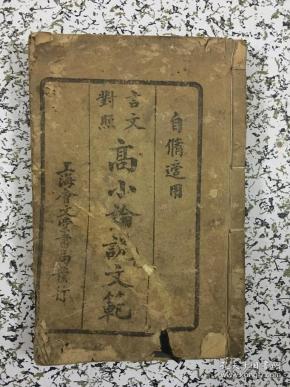 自脩適用
言文對照
高小論說文範
上海會文堂書局發行